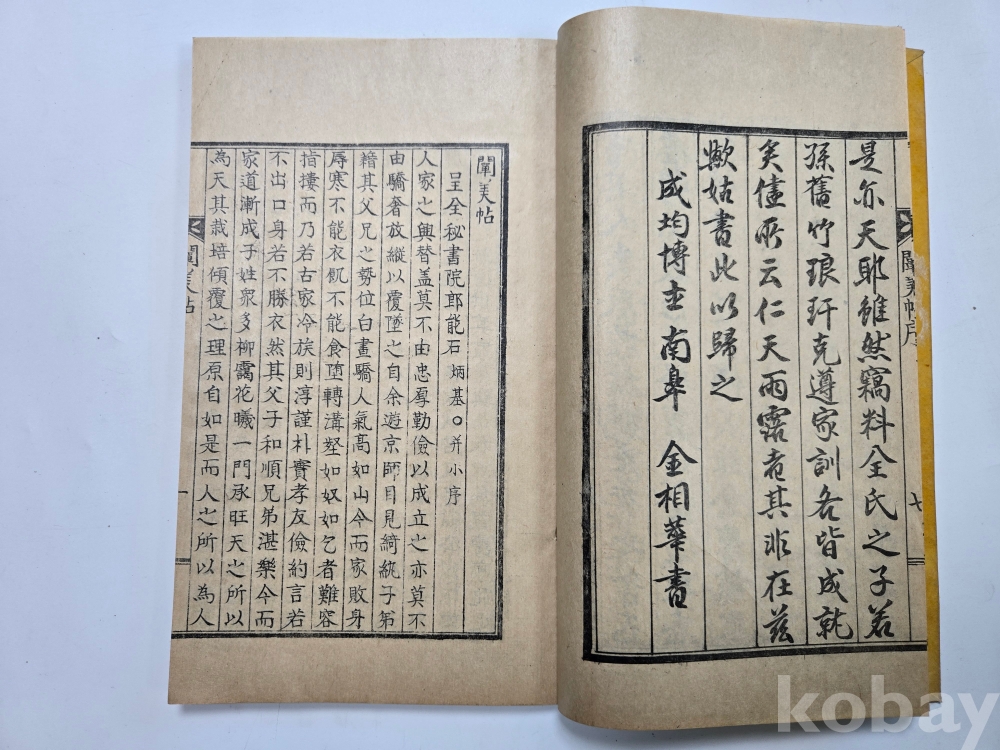 是亦天耶雖然竊料全氏之子若
孫舊竹琅玕克遵家訓各皆成就
矣儘所云仁天雨露者其非在玆
歟姑書此以歸之
成均博士 南臯 金相華書
闡美帖序
七
闡美帖
呈全秘書院郎能石炳基○并小序
人家之興替盖莫不由忠厚勤儉以成立之亦莫不
由驕奢放縱以覆墜之自余遊京師目見綺紈子弟
籍其父兄之勢位白晝驕人氣高如山今而家敗身
辱寒不能衣飢不能食墮轉溝壑如奴如乞者難容
指摟而乃若古家冷族則淳謹朴實孝友儉約言若
不出口身若不勝衣然其父子和順兄弟湛樂今而
家道漸成子姓衆多柳靄花曦一門承旺天之所以
為天其栽培傾覆之理原自如是而人之所以為人
闡美帖
一
kobay